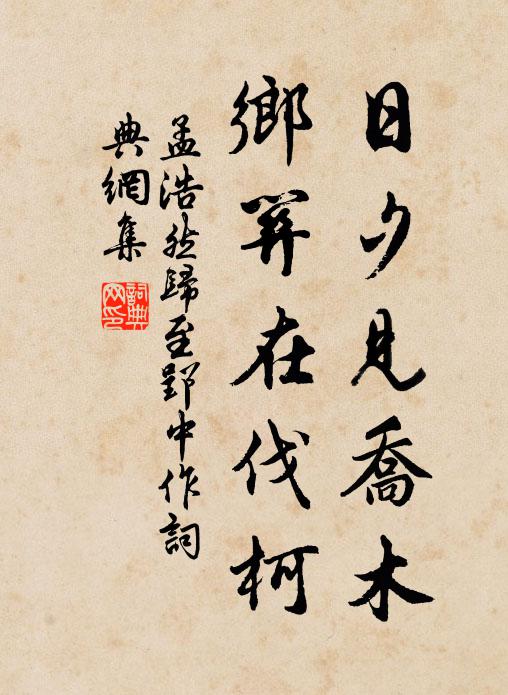 日夕見喬木
鄉關在伐柯
孟浩然歸至郢中作詞
典網集
詞典網印